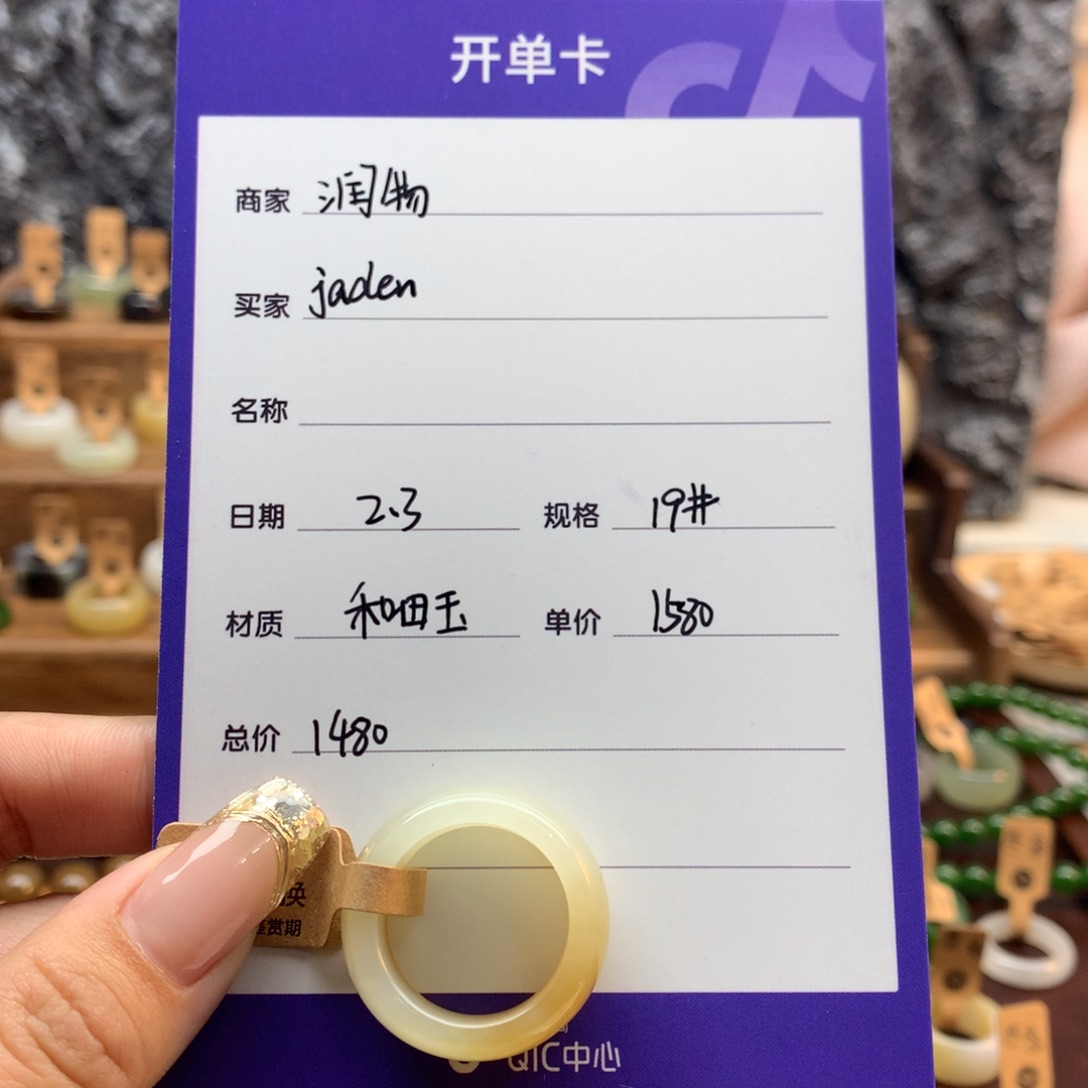 开单卡
商家 润物
买家 jaden
名称
日期 2.3 规格 19#
材质 和田玉 单价 1580
总价 1480
换
鉴赏期
QIC中心